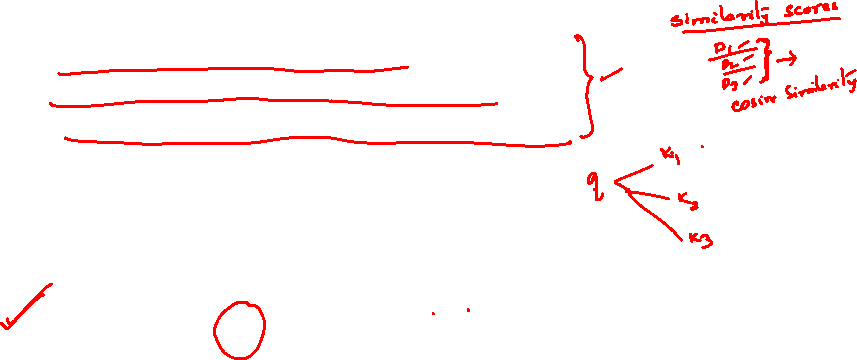 Similarity scores
D1
D2
D3
cosine similarity
q
K1
K2
K3